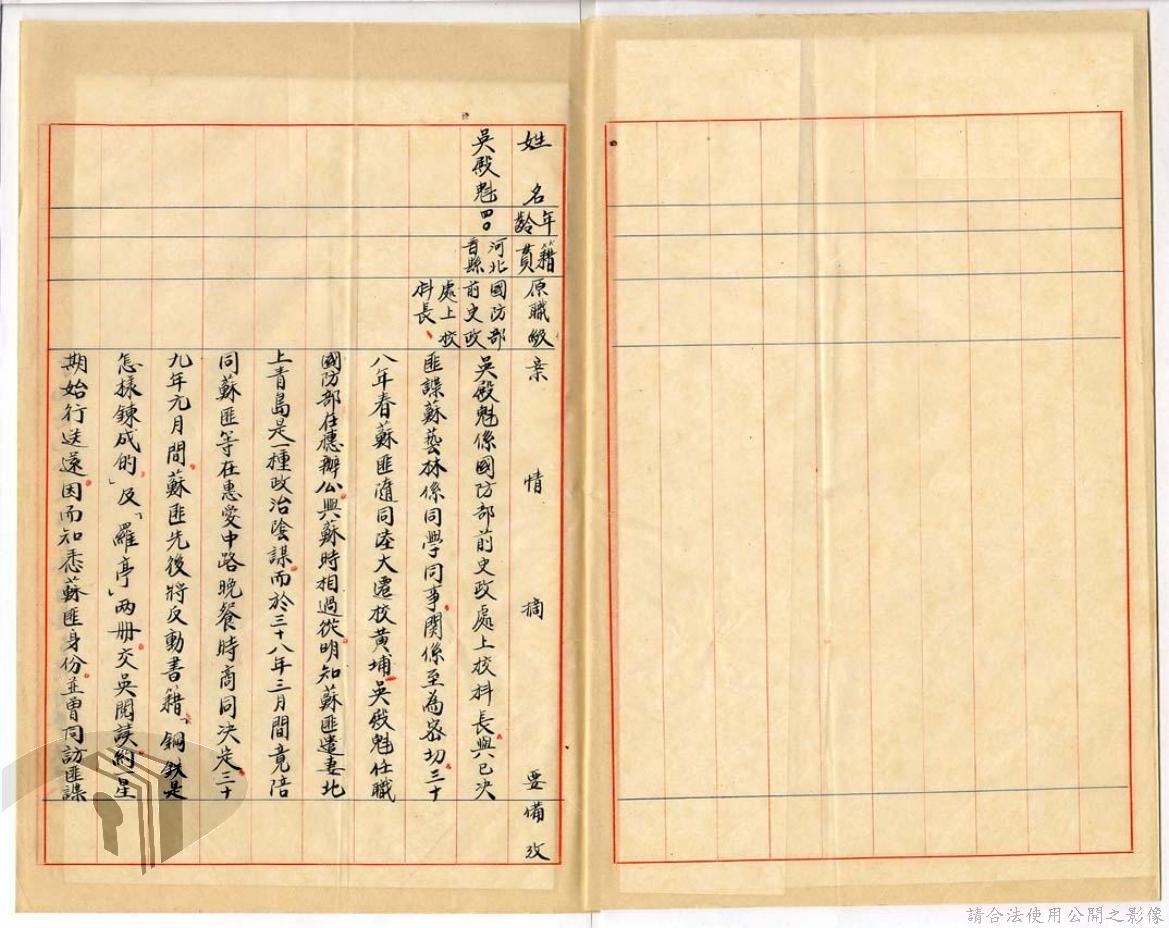 姓名
年齡
籍貫
原職級
案情摘要
備攷
吳殿魁
四〇
河北
晉縣
國防部
前史政
處上校
科長、
吳殿魁係國防部前史政處上校科長與已決
匪諜蘇藝林係同學同事關係至為密切三十
八年春蘇匪隨同陸大遷校黃埔吳殿魁任職
國防部在穗辦公與蘇時相過從明知蘇匪遣妻北
上青島是一種政治陰謀而於三十八年三月間竟陪
同蘇匪等在惠愛中路晚餐時商同決定三十
九年元月間蘇匪先後將反動書籍「鋼鉄是
怎樣鍊成的」及「羅亭」两册交吳閱讀約一星
期始行送還因而知悉蘇匪身份並曾同訪匪諜
請合法使用公開之影像